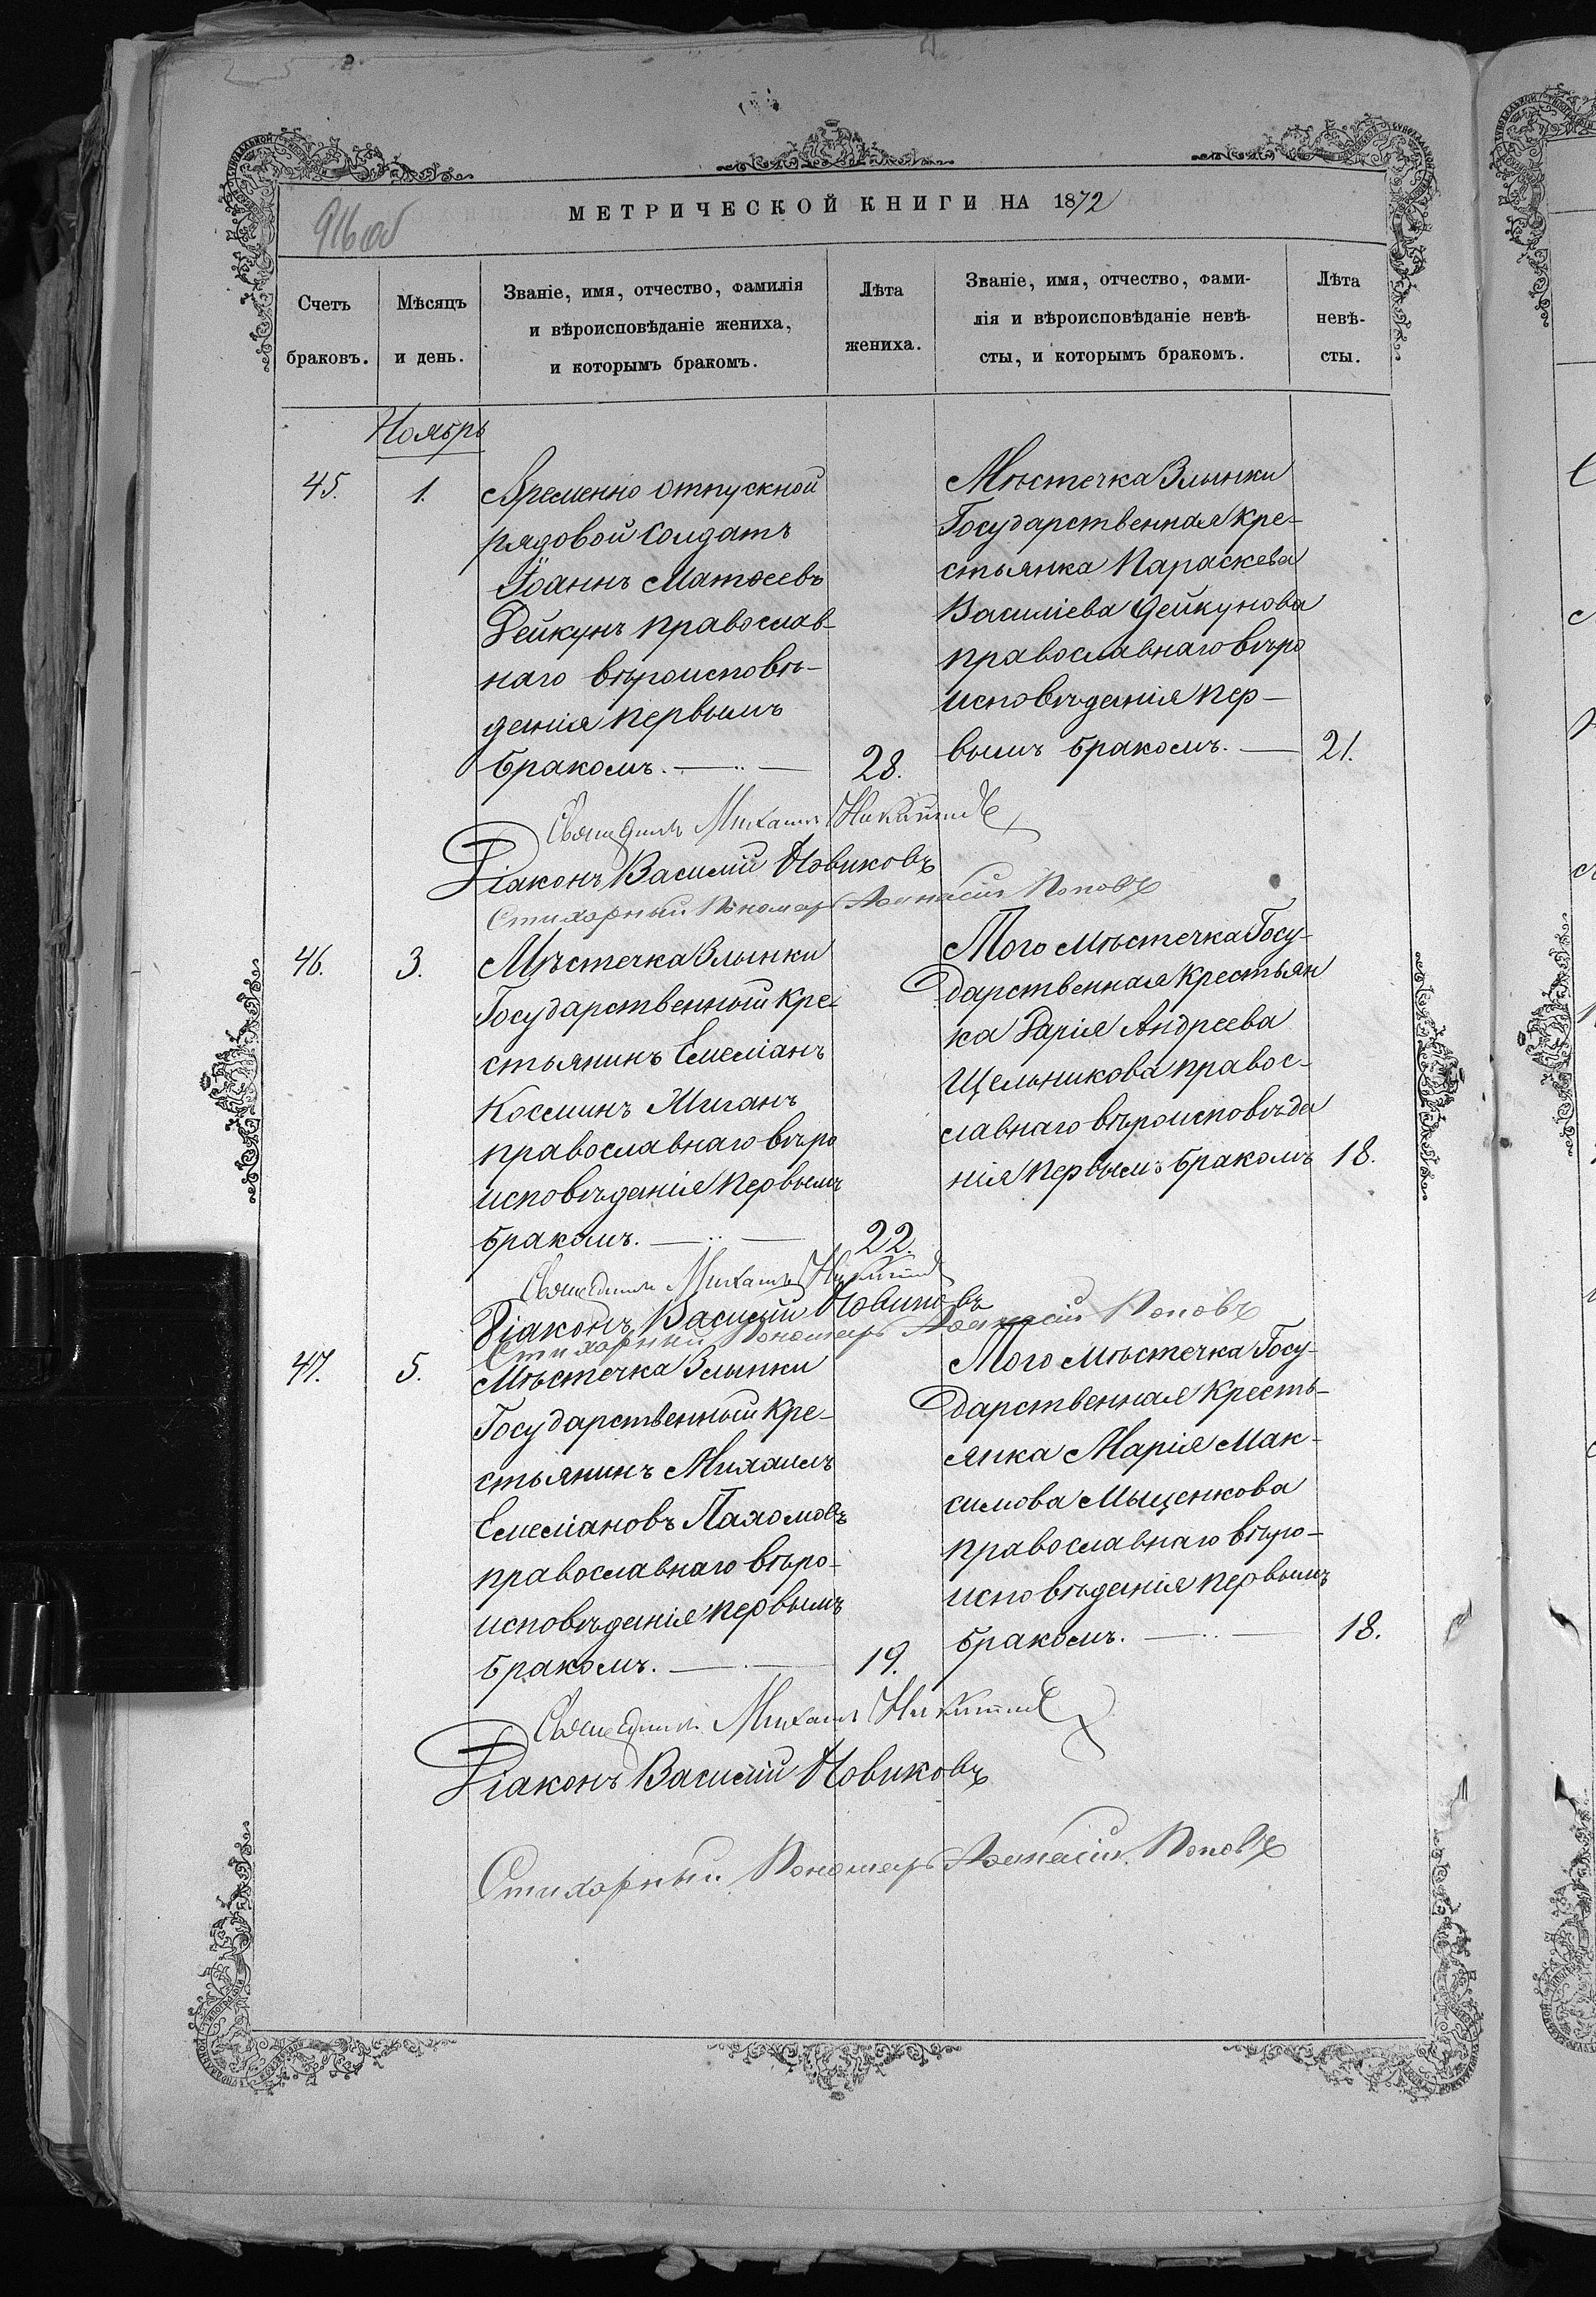 916 об
МЕТРИЧЕСКОЙ КНИГИ НА 1872
Счетъ
браковъ.
Мѣсяцъ
и день.
Званіе, имя, отчество, фамилія
и вѣроисповѣданіе жениха,
и которымъ бракомъ.
Лѣта
жениха.
Званіе, имя, отчество, фами-
лія и вѣроисповѣданіе невѣ-
сты, и которымъ бракомъ.
Лѣта
невѣ-
сты.
Ноябрь
45.
1.
Временно отпускной
рядовой Солдатъ
Іоаннъ Матѳеевъ
Дейкунъ православ-
наго вѣроисповѣ-
денія первымъ
бракомъ.
28.
Мѣстечка Злынки
Государственная Кре-
стьянка Параскева
Василіева Дейкунова
православнаго вѣро
исповѣденія пер-
вымъ бракомъ.
21.
Священникъ Михаилъ
Діаконъ Василій Новиковъ
Стихарный Пономарь Аѳанасій Поповъ
46.
3.
Мѣстечка Злынки
Государственный Кре-
стьянинъ Емеліанъ
Косминъ
православнаго вѣро
исповѣденія первымъ
бракомъ.
22.
Того Мѣстечка Госу-
дарственная Крестьян
ка Дарія Андреева
Щельникова правос-
славнаго вѣроисповѣде
нія первымъ бракомъ
18.
Священникъ Михаилъ
Діаконъ Василій Новиковъ
Стихарный Пономарь Аѳанасій Поповъ
47.
5.
Мѣстечка Злынки
Государственный Кре-
стьянинъ Михаилъ
Емеліановъ Пахомовъ
православнаго вѣро-
исповѣденія первымъ
бракомъ.
19.
Того Мѣстечка Госу-
дарственная Кресть-
янка Марія Мак-
симова Мыценкова
православнаго вѣро-
исповѣденія первымъ
бракомъ.
18.
Священникъ Михаилъ
Діаконъ Василій Новиковъ
Стихарный Пономарь Аѳанасій Поповъ